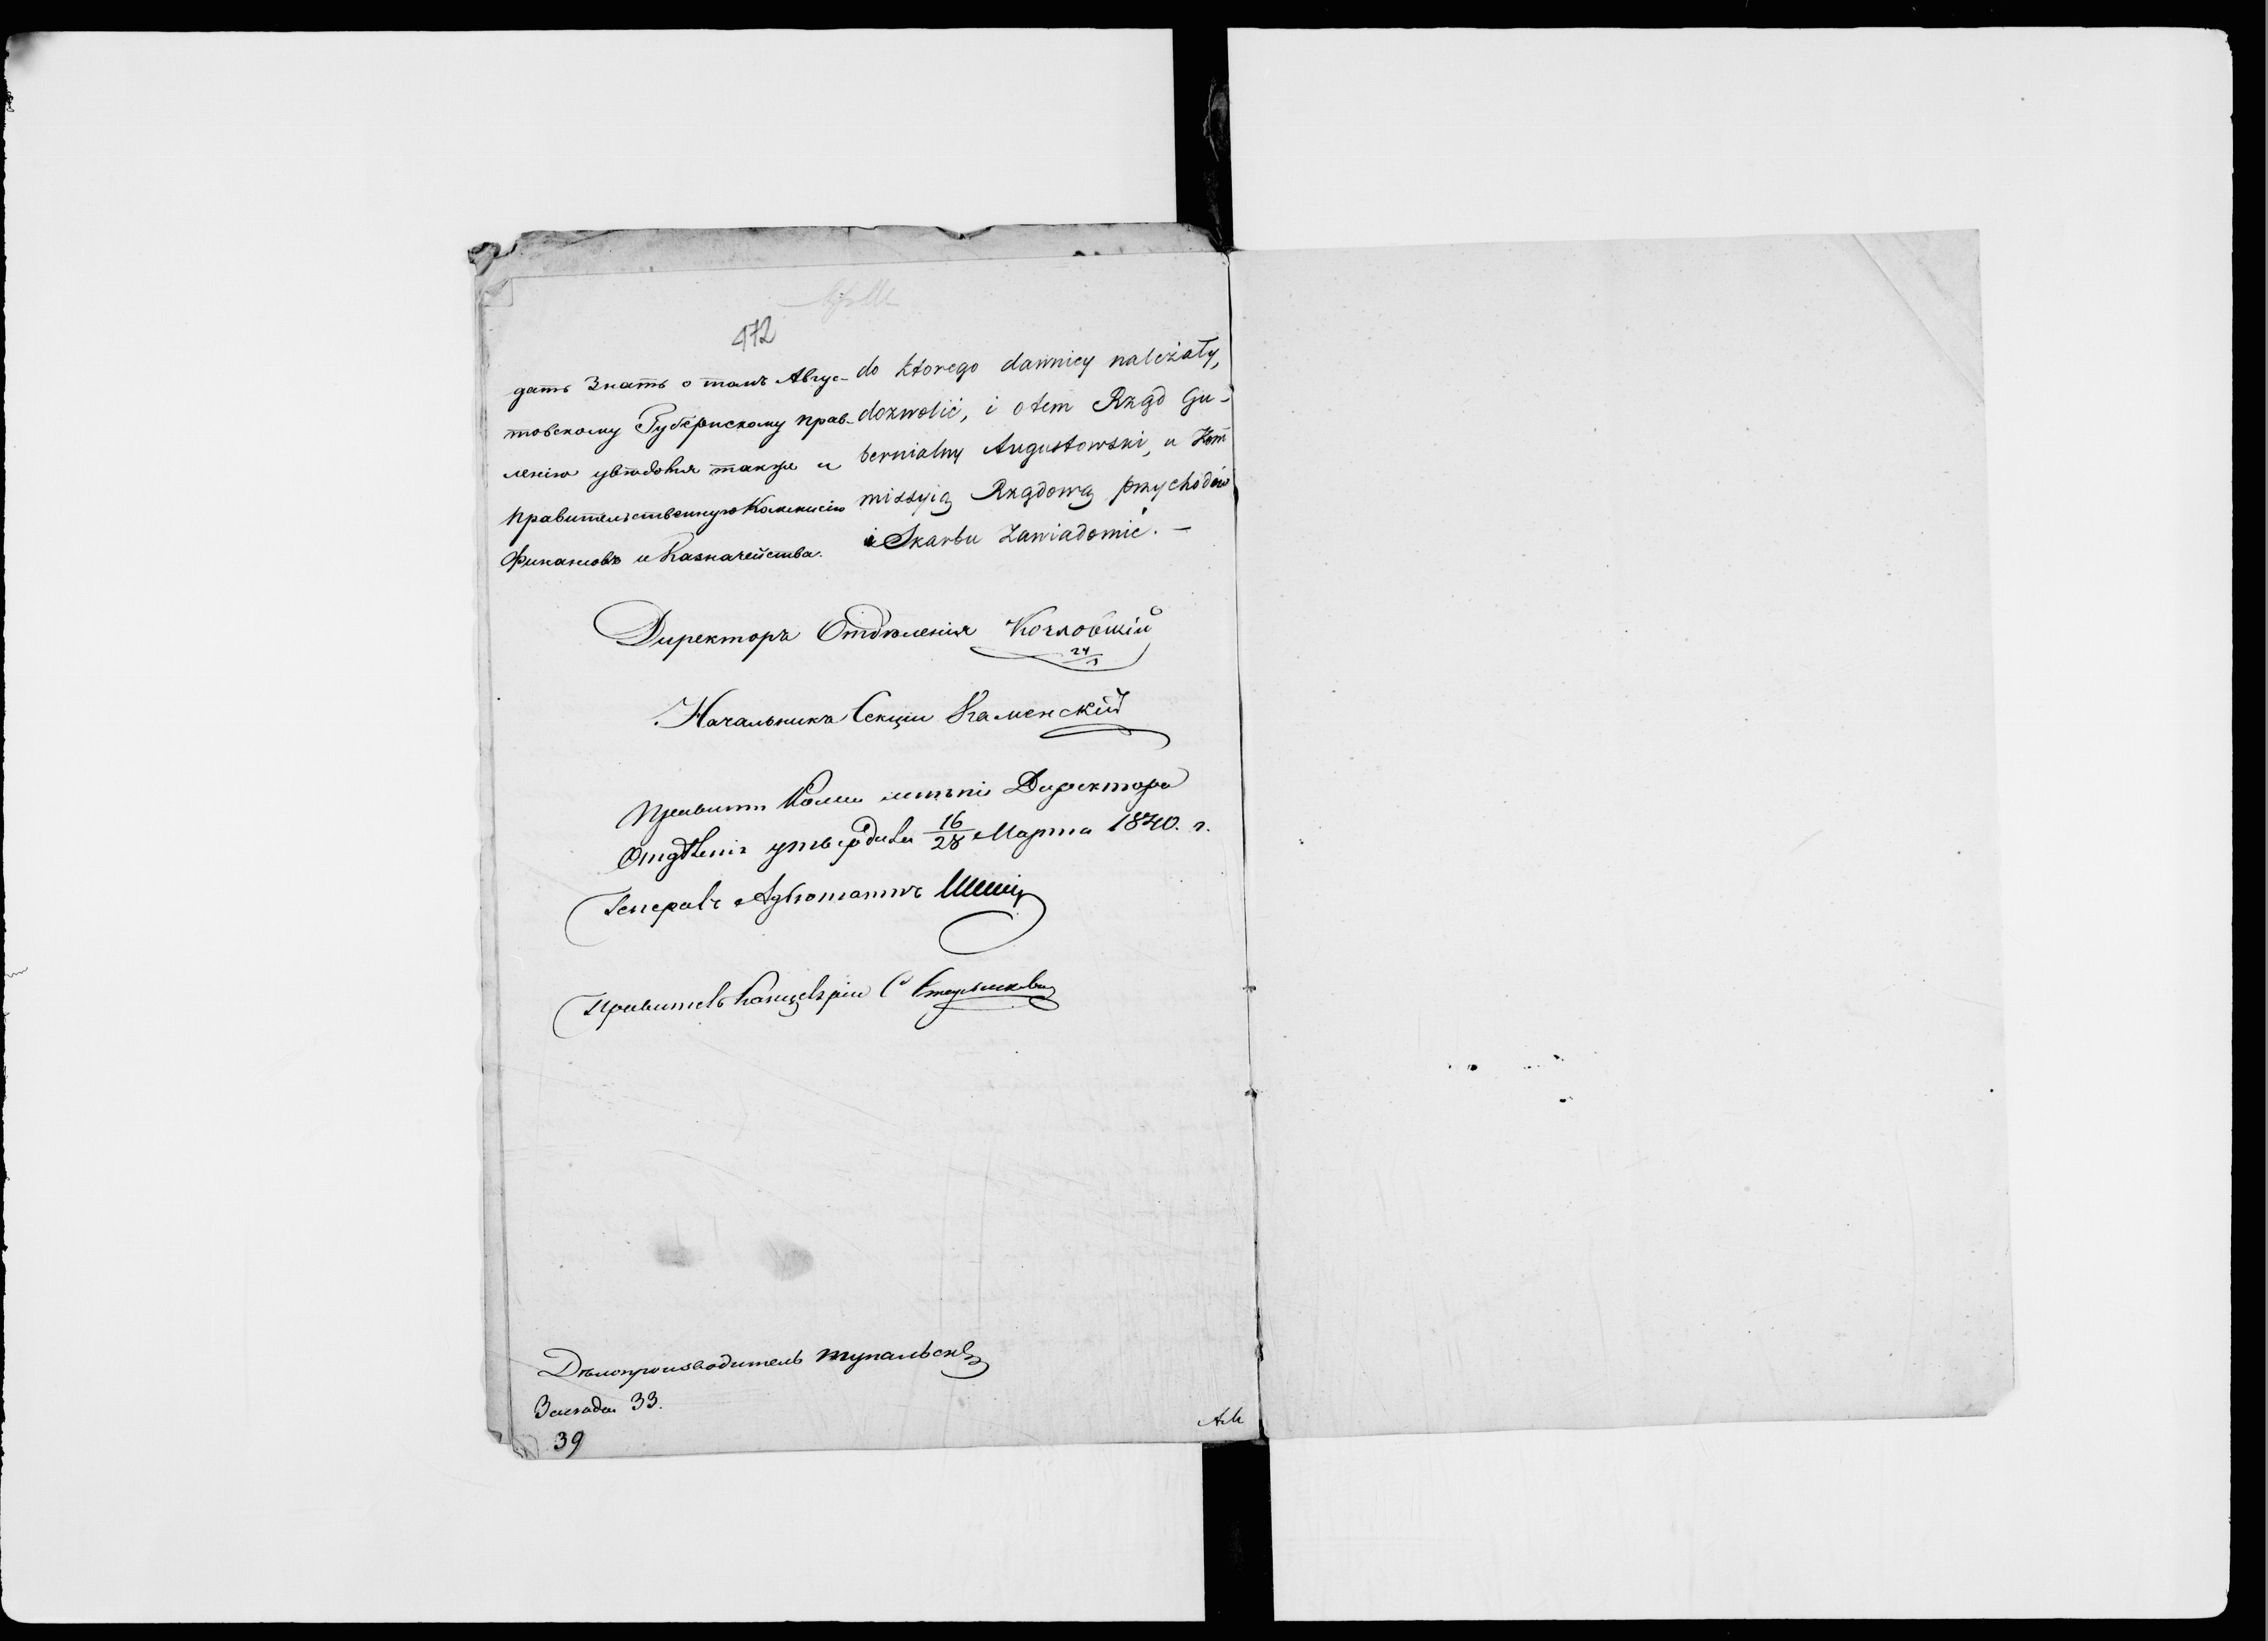 472
дать знать о томъ Авгус-
товскому Губернскому прав-
ленію увѣдомя также и
Правительственную Коммисію
Финансовъ и Казначейства.
do ktorego dawniey należały,
dozwolić, i otem Rząd Gu-
bernialny Augustowski, a Kom
missyią Rządową przychodów
i Skarbu zawiadomić. —
Директоръ Отдѣленія Козловскій
24/3
Начальникъ Секціи Каменскій
Правит. Комм. мнѣніе Директора
Отдѣленія утвердила 16/28 Марта 1840. г.
Генералъ Адъютантъ
Правитель Канцеляріи С
Дѣлопроизводитель
33.
39